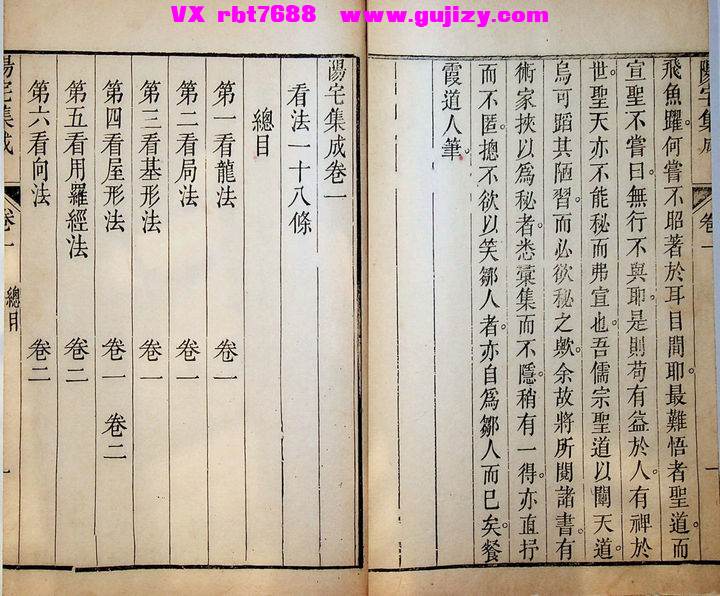 VX rbt7688 www.gujizy.com
陽宅集成
卷一
飛魚躍。何嘗不昭著於耳目間耶。最難悟者聖道。而
宣聖不嘗曰。無行不與耶。是則苟有益於人。有裨於
世。聖天亦不能秘而弗宣也。吾儒宗聖道以闡天道。
烏可蹈其陋習。而必欲秘之歟。余故將所閱諸書。有
術家挾以爲秘者。悉彙集而不隱。稍有一得。亦直抒
而不匿。摠不欲以笑鄒人者。亦自爲鄒人而已矣。餐
霞道人筆。
陽宅集成卷一
看法一十八條
總目
第一看龍法 卷一
第二看局法 卷一
第三看基形法 卷一
第四看屋形法 卷一 卷二
第五看用羅經法 卷二
第六看向法 卷二
陽宅集成
卷一 總目 一